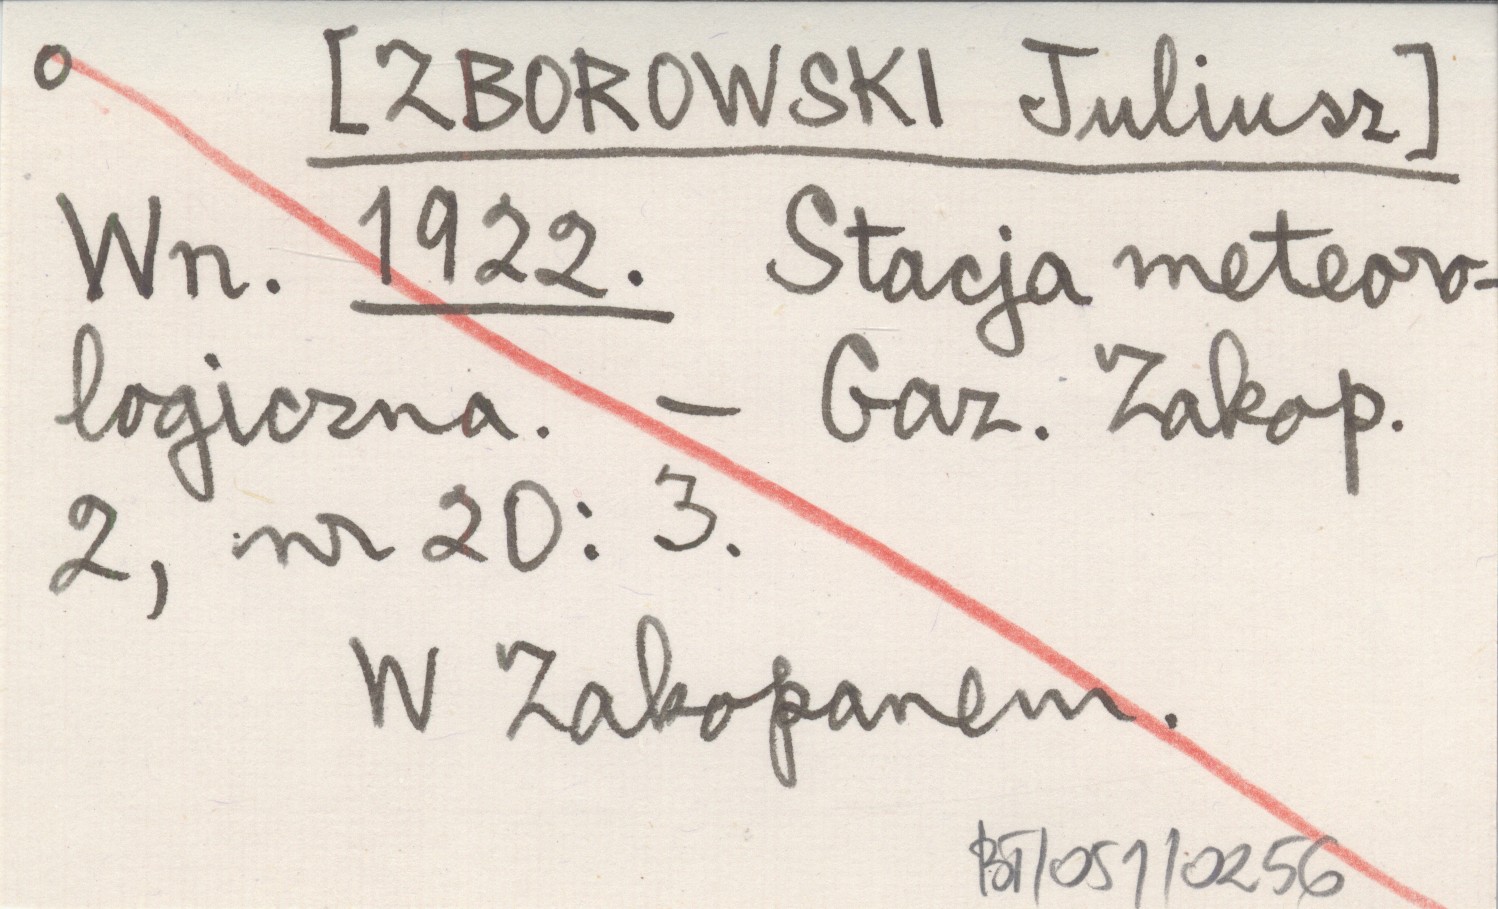 o [ZBOROWSKI Juliusz]
Wn. 1922. Stacja meteoro-
logiczna. — Gaz. Zakop.
2, nr 20: 3.
W Zakopanem.
BT/051/0256